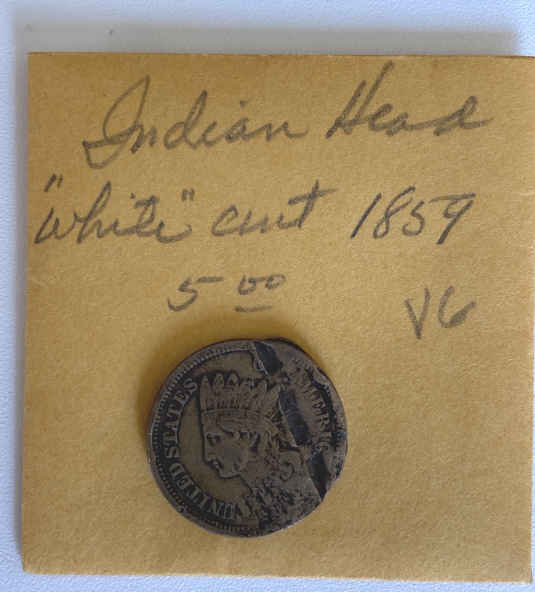 Indian Head
"White" cent 1859
5 00 VG
UNITED STATES